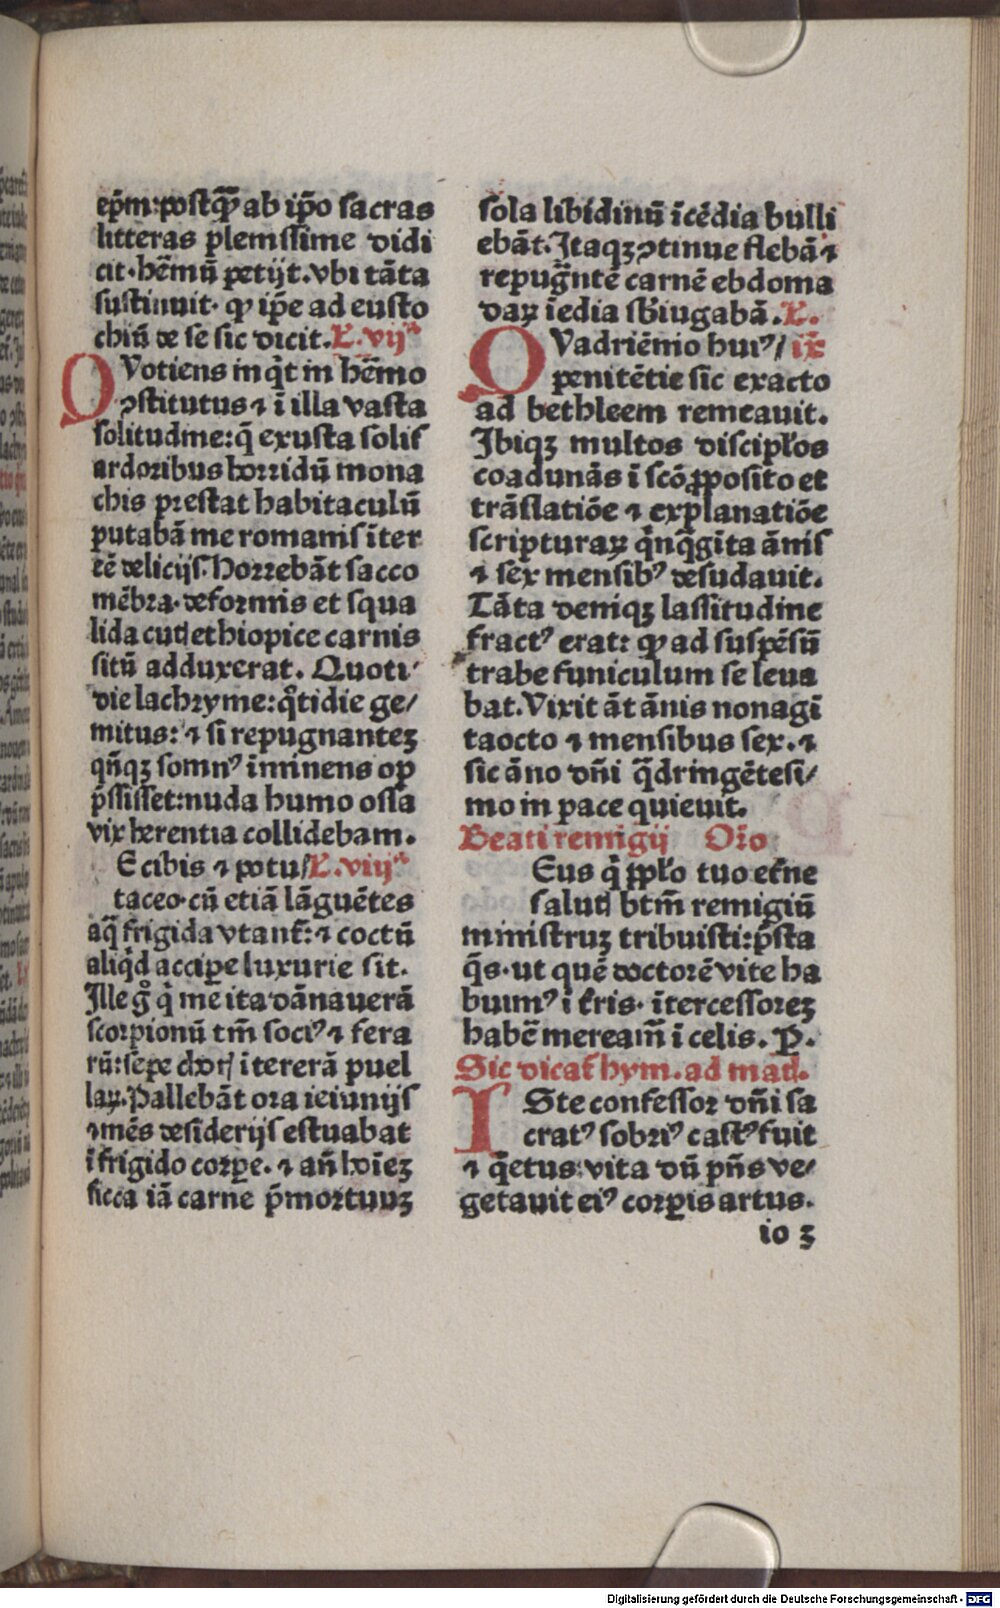 ep̄m:postq̄ꝫ ab ip̄o sacras
litteras plenissime didi
cit·hēmū petijt.vbi tāta
sustinuit· ꝙ ip̄e ad eusto
chiū de se sic dicit. L.vijᵃ
QVotiens inq̇t in hēmo
ↄstitutus ⁊ ī illa vasta
solitudine:q̄ exusta solis
ardoribus horridū mona
chis prestat habitaculū
putabā me romanis īter
eē delicijs.Horrebāt sacco
mēbra·deformis et squa
lida cutꝭ ethiopice carnis
sitū adduxerat. Quoti/
die lachryme:q̊tidie ge/
mitus: ⁊ si repugnantez
qn̄qꝫ somnꝰ iminens op
p̄ssisset:nuda humo ossa
vix herentia collidebam.
E cibis ⁊ potu L.viijᵃ
taceo·cū etiā lāguētes
aq̄ frigida vtant̄: ⁊ coctū
aliq̇d accipe luxurie sit.
Ille g̊ q̇ me ita dānauerā
scorpionū tm̄ sociꝰ ⁊ fera
rū:sepe chorꝭ ītererā puel
laꝝ.Pallebāt ora ieiunijs
⁊ mēs desiderijs estuabat
ī frigido corpe. ⁊ an̄ hoīez
sicca iā carne p̄mortuuꝫ
sola libidinū īcēdia bulli
ebāt.Itaqꝫ ↄtinue flebā ⁊
repuḡntē carnē ebdoma
daꝝ īedia sb̄iugabā. L.
QVadriēnio huiꝰ/ ix
penitētie sic exacto
ad bethleem remeauit.
Ibiqꝫ multos discipłos
coadunās ī scō ꝓposito et
trāslatiōe ⁊ explanatiōe
scripturaꝝ q̇nq̄gīta ānis
⁊ sex mensibꝰ desudauit.
Tāta deniqꝫ lassitudine
fractꝰ erat: ꝙ ad suspēsū
trabe funiculum se leua
bat.Vixit āt ānis nonagī
taocto ⁊ mensibus sex. ⁊
sic āno dn̄i q̄dringētesi/
mo in pace quieuit.
Beati remigij Or̄o
Eus q̇ ppło tuo et̄ne
salutꝭ btm̄ remigiū
ministruꝫ tribuisti:p̄sta
q̄s·ut quē doctorē vite ha
buimꝰ ī t̄ris· ītercessoreꝫ
habē mereām̄ ī celis. P.
Sic dicat̄ hym.ad mat.
ISte confessor dn̄i sa
cratꝰ sobriꝰ castꝰ fuit
⁊ q̇etus:vita dū pn̄s ve/
getauit eiꝰ corpis artus.
io 3
Digitalisierung gefördert durch die Deutsche Forschungsgemeinschaft - DFG